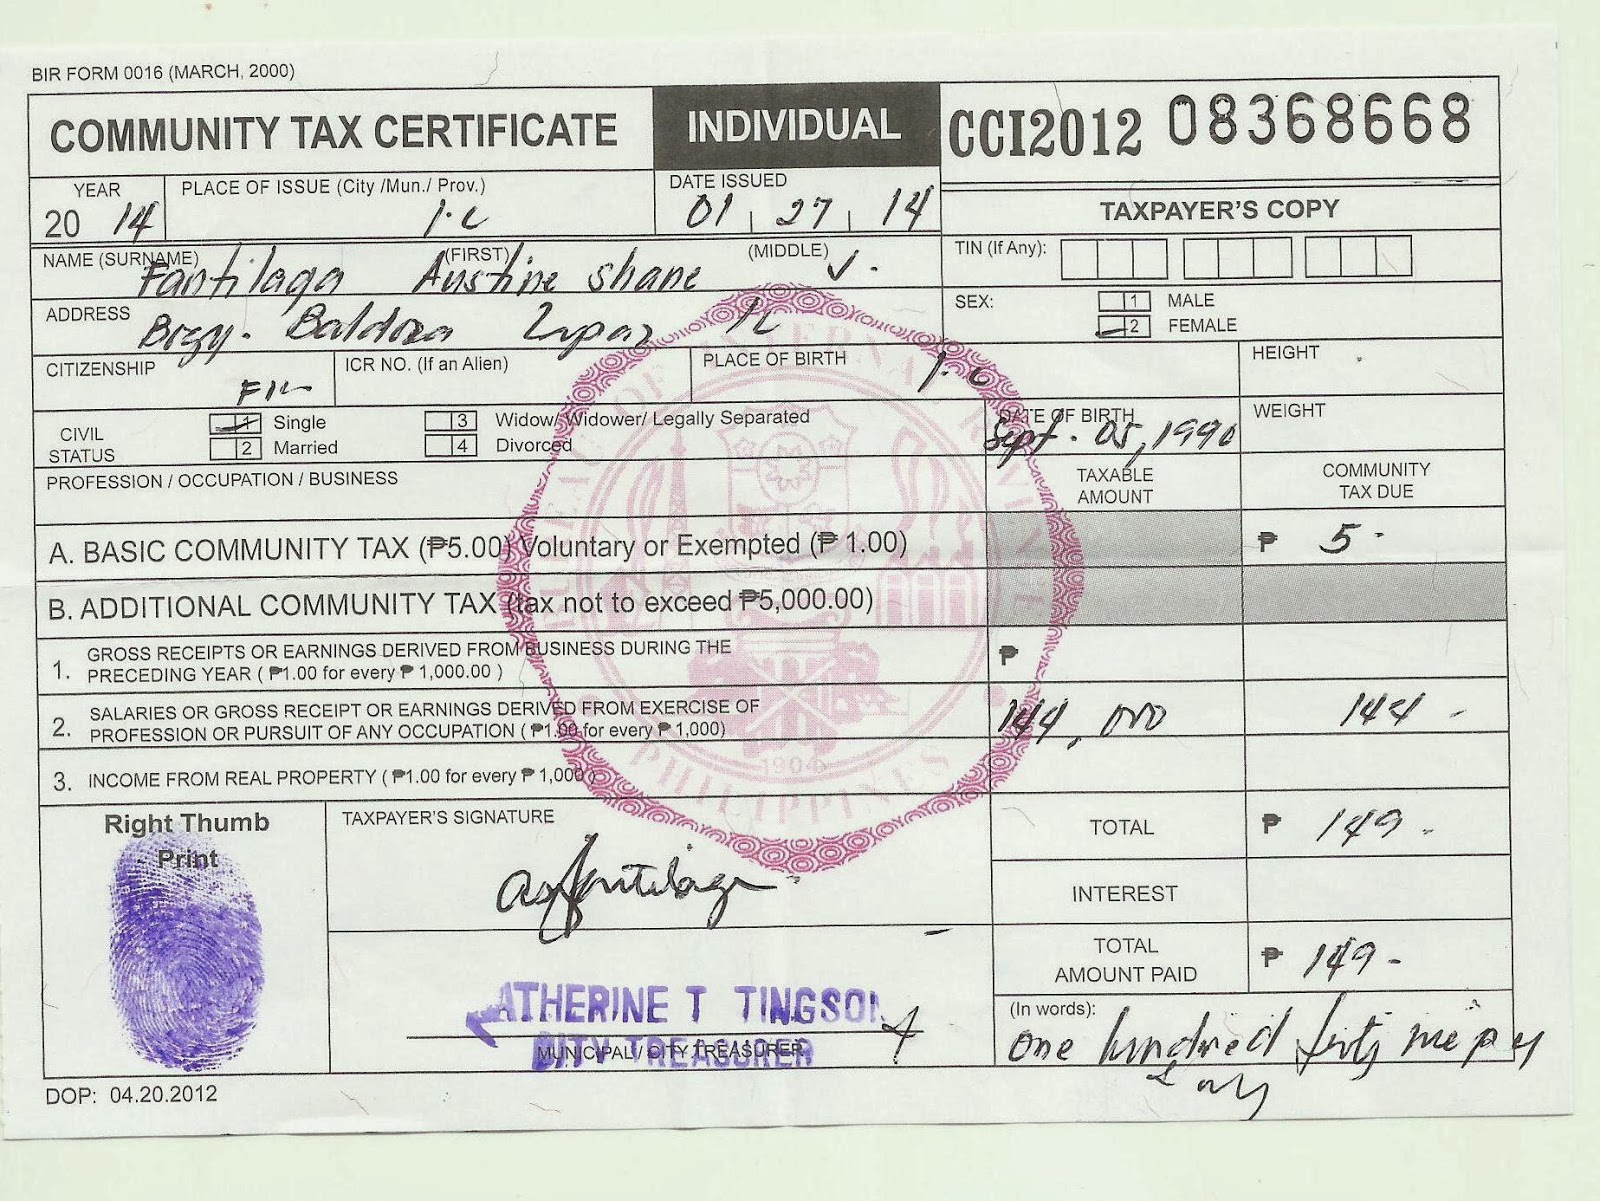 BIR FORM 0016 (MARCH, 2000)
COMMUNITY TAX CERTIFICATE
INDIVIDUAL
CCI2012 08368668
YEAR
20 14
PLACE OF ISSUE (City /Mun./ Prov.)
I.C
DATE ISSUED
01 27 14
TAXPAYER'S COPY
NAME (SURNAME) (FIRST) (MIDDLE)
Fantilaga Austine Shane V.
TIN (If Any):
ADDRESS
Brgy. Baldoza Lapaz IC
SEX:
1 MALE
2 FEMALE
CITIZENSHIP
FIL
ICR NO. (If an Alien)
PLACE OF BIRTH
I.C
HEIGHT
CIVIL
STATUS
1 Single
2 Married
3 Widow/ Widower/ Legally Separated
4 Divorced
DATE OF BIRTH
Sept. 05, 1990
WEIGHT
PROFESSION / OCCUPATION / BUSINESS
TAXABLE
AMOUNT
COMMUNITY
TAX DUE
A. BASIC COMMUNITY TAX (₱5.00) Voluntary or Exempted (₱ 1.00)
₱ 5-
B. ADDITIONAL COMMUNITY TAX (tax not to exceed ₱5,000.00)
1. GROSS RECEIPTS OR EARNINGS DERIVED FROM BUSINESS DURING THE
PRECEDING YEAR ( ₱1.00 for every ₱ 1,000.00 )
₱
2. SALARIES OR GROSS RECEIPT OR EARNINGS DERIVED FROM EXERCISE OF
PROFESSION OR PURSUIT OF ANY OCCUPATION ( ₱1.00 for every ₱ 1,000)
144,000 144-
3. INCOME FROM REAL PROPERTY ( ₱1.00 for every ₱ 1,000 )
BUREAU OF INTERNAL REVENUE
PHILIPPINES
1904
Right Thumb
Print
TAXPAYER'S SIGNATURE
asfantilaga
TOTAL ₱ 149-
INTEREST
TOTAL
AMOUNT PAID
₱ 149-
KATHERINE T TINGSON
CITY TREASURER
MUNICIPAL / CITY TREASURER
(In words):
One hundred forty nine pesos
only
DOP: 04.20.2012